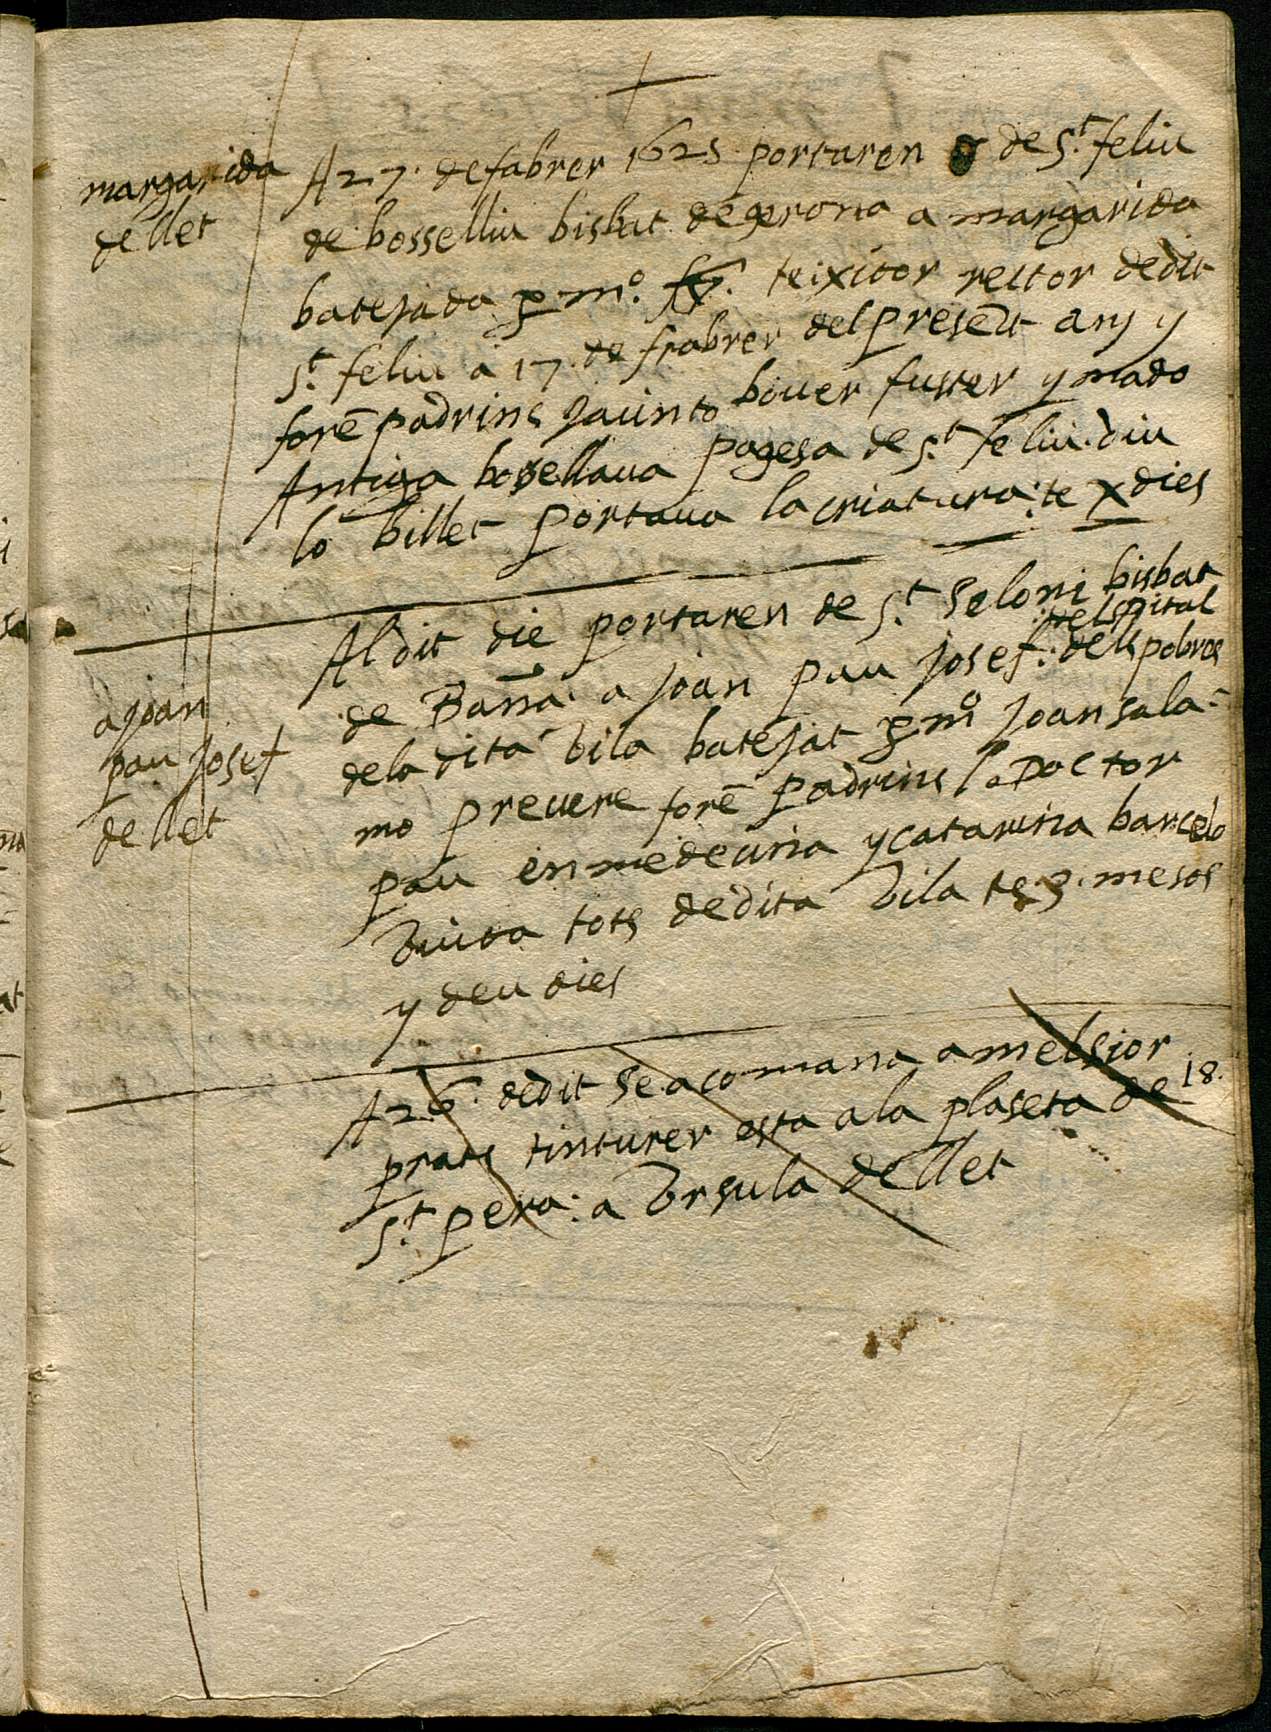 margarida
de llet
A 27. de fabrer 1625 portaren de St. feliu
de bosselliu bisbat de gerona a margarida
batejada p mo. teixidor rector de dit
St. feliu a 17. de frabrer del present any y
forē padrins Jacinto bouer fuster y mado
Antiga bossellaua pagesa de St. feliu. diu
lo billet portaua la criatura: te x dies
Al dit die portaren de St. Seloni bisbat
de Barña. a Joan pau Josef: del spital
dels pobres
a joan
pau Josef
de llet
de la dita vila batejat p mo Joan sala-
mo preuere forē padrins lo Doctor
pau en medecina y catarina barcelo
viuda tots de dita vila te 3. mesos
y deu dies
A 26. de dit se acomana a melsior
prats tinturer esta a la plaseta de 18.
St. pera: a vrsula de llet